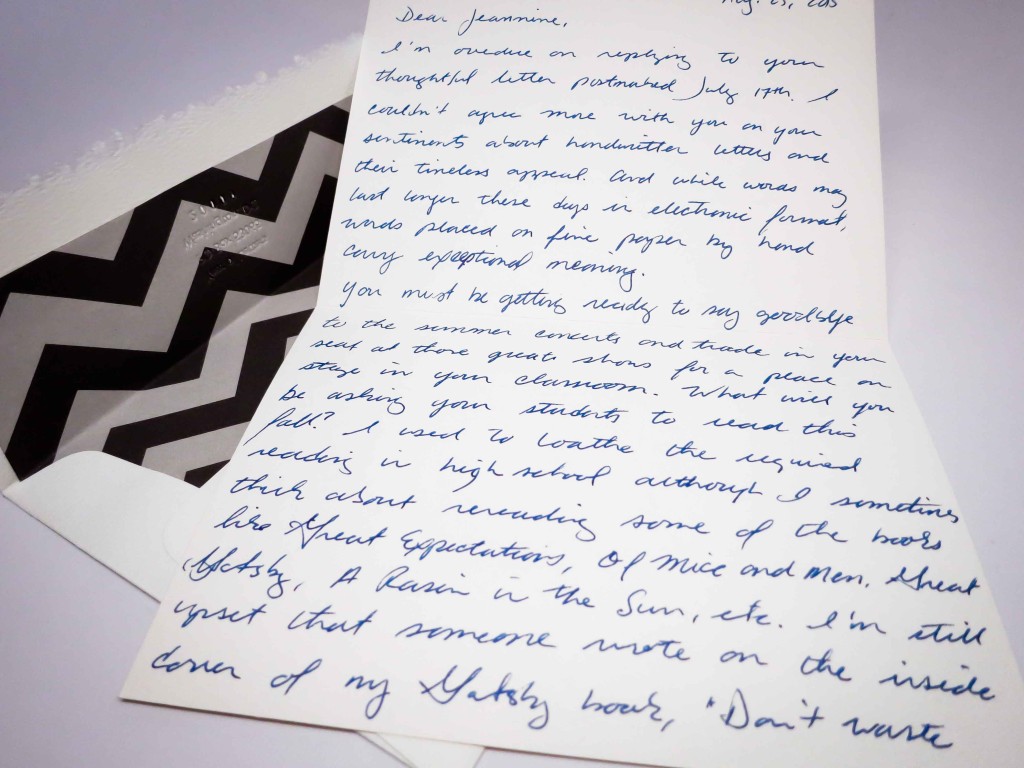 Aug. 25, 2013
Dear Jeannine,
I'm overdue on replying to your
thoughtful letter postmarked July 17th. I
couldn't agree more with you on your
sentiments about handwritten letters and
their timeless appeal. And while words may
last longer these days in electronic format,
words placed on fine paper by hand
carry exceptional meaning.
You must be getting ready to say goodbye
to the summer concerts and trade in your
seat at those great shows for a place on
stage in your classroom. What will you
be asking your students to read this
fall? I used to loathe the required
reading in high school although I sometimes
think about rereading some of the books
like Great Expectations, Of Mice and Men, Great
Gatsby, A Raisin in the Sun, etc. I'm still
upset that someone wrote on the inside
cover of my Gatsby book, "Don't waste